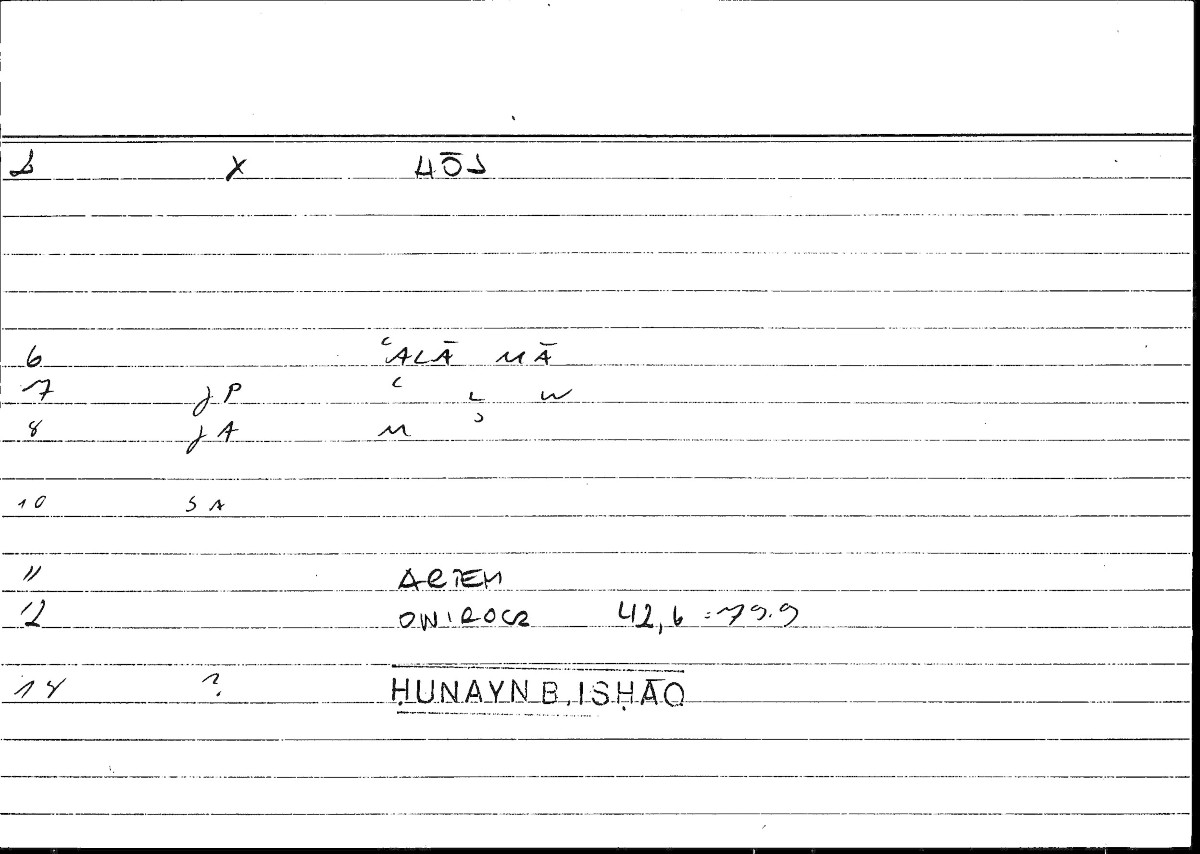 X HŌS
6 ʿALĀ MĀ
7 JP ʿ L W
8 JA M
10 SA
11 ARTEM
12 ONIROCR 42,6 : 79.9
14 ? ḤUNAYN B. ISḤĀQ